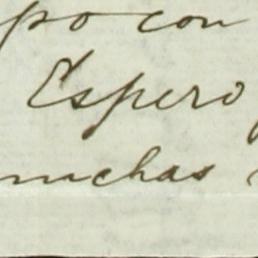 po con
Espero
muchas